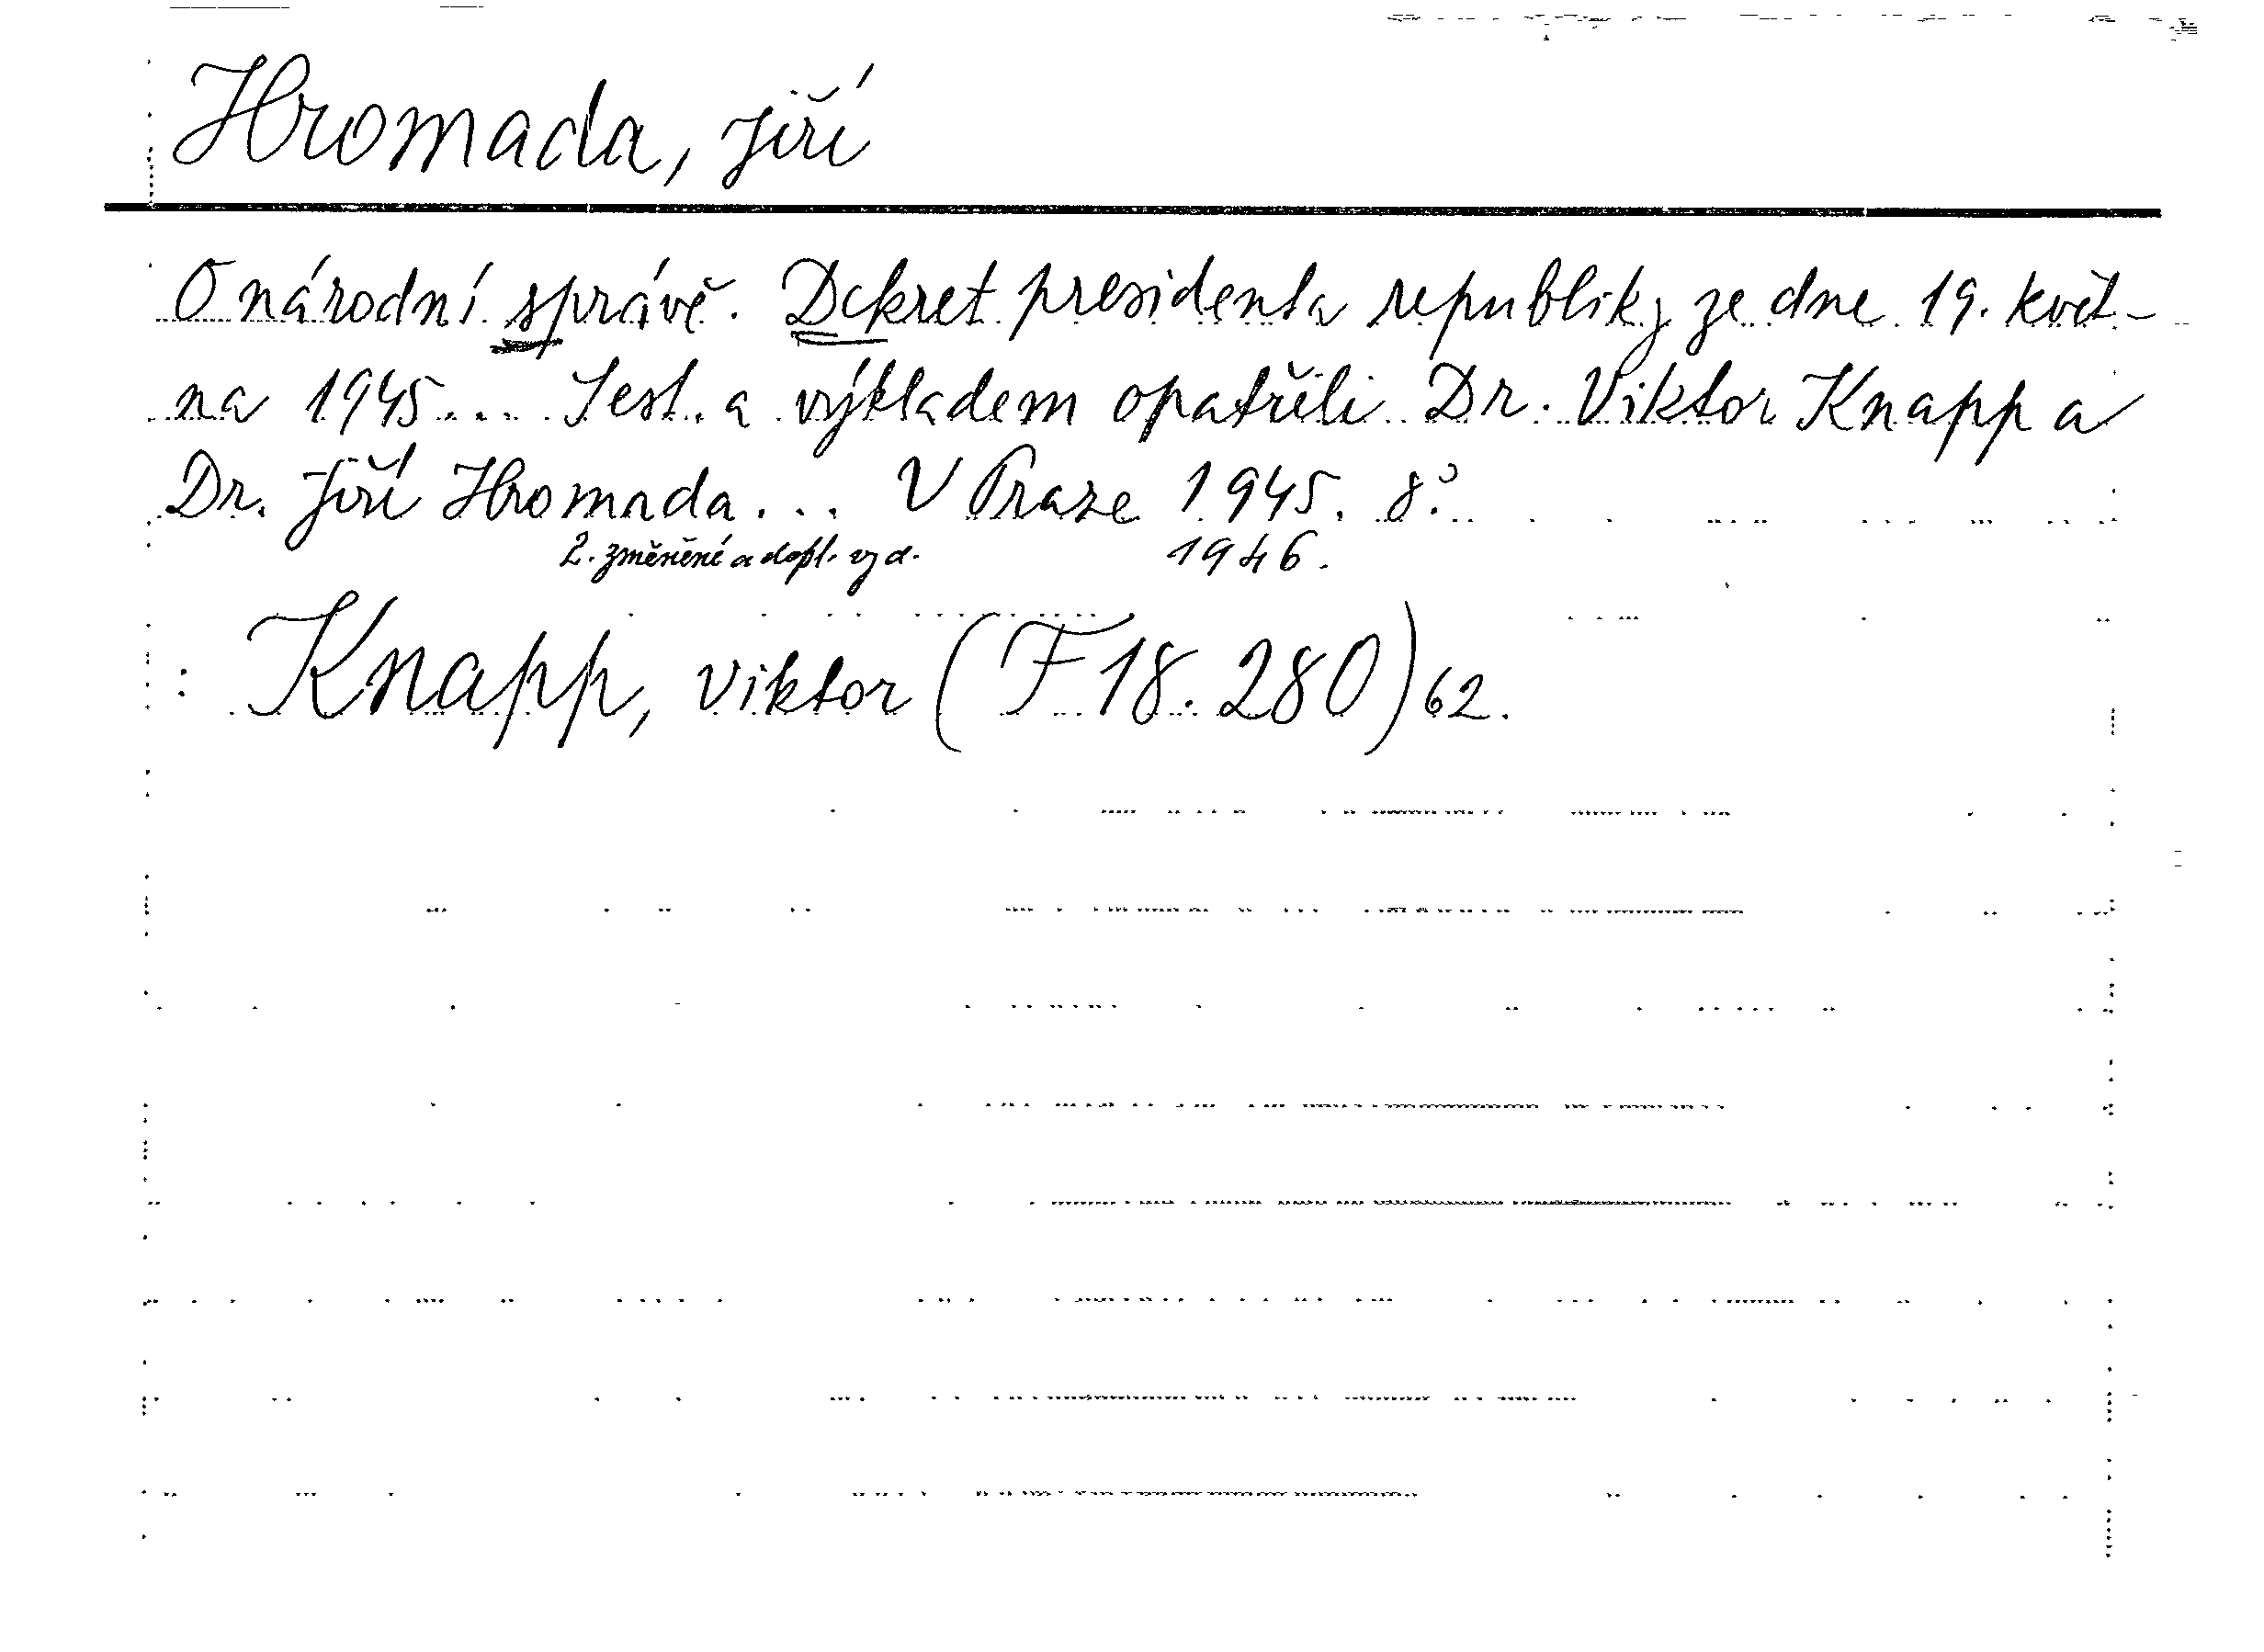 Hromada, Jiří
O národní správě. Dekret presidenta republiky ze dne 19. květ-
na 1945.... Sest. a výkladem opatřili Dr. Viktor Knapp a
Dr. Jiří Hromada... V Praze 1945. 8°.
2. změněné a dopl. vyd. 1946.
: Knapp, Viktor (F 18.280) 62.